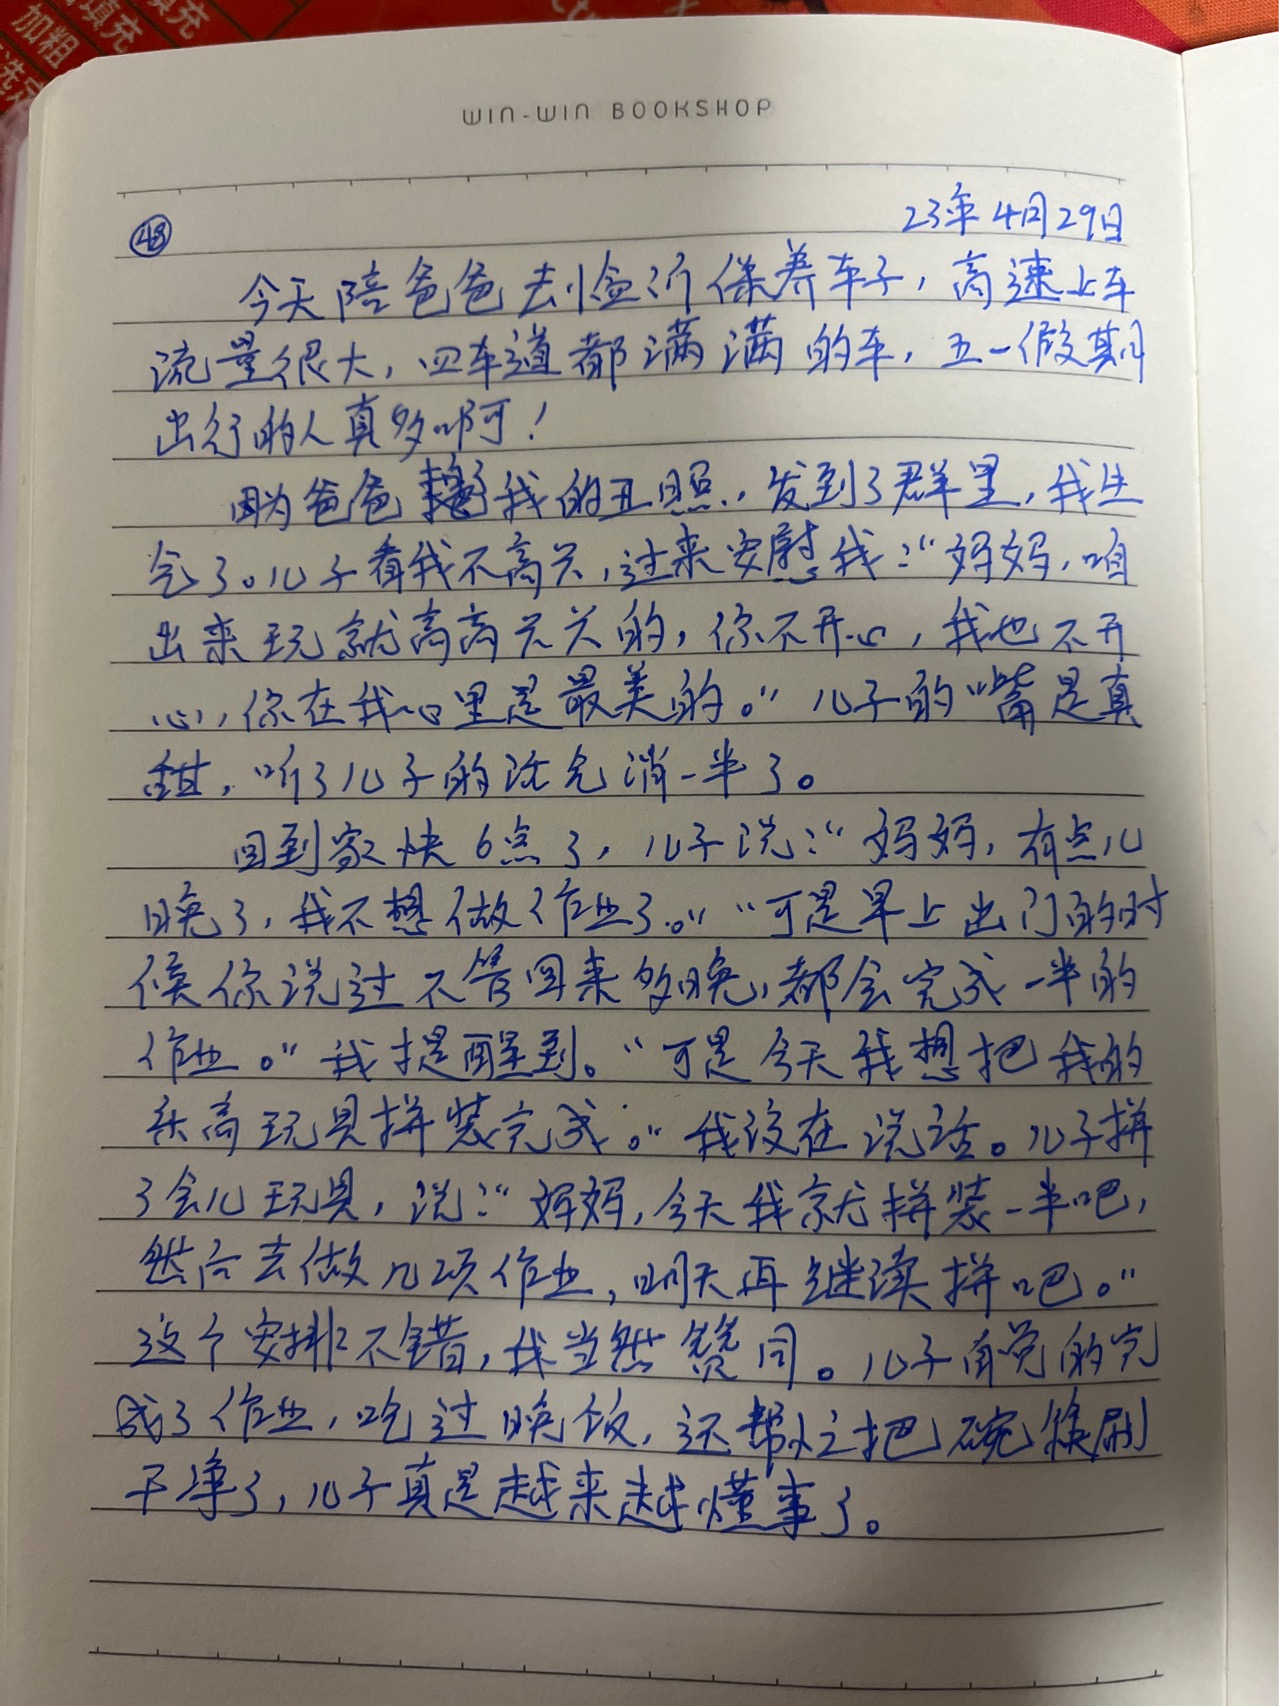 WIN-WIN BOOKSHOP
㊽ 23年4月29日
今天陪爸爸去临沂保养车子，高速上车
流量很大，四车道都满满的车，五一假期
出行的人真多啊！
因为爸爸把我的丑照，发到了群里，我生
气了。儿子看我不高兴，过来安慰我：“妈妈，咱
出来玩就高高兴兴的，你不开心，我也不开
心，你在我心里是最美的。”儿子的“嘴是真
甜，听了儿子的话气消一半了。
回到家快6点了，儿子说：“妈妈，有点儿
晚了，我不想做作业了。”“可是早上出门的时
候你说过不管回来多晚，都会完成一半的
作业。”我提醒到。“可是今天我想把我的
乐高玩具拼装完成。”我没在说话。儿子拼
了会儿玩具，说：“妈妈，今天我就拼装一半吧，
然后去做几项作业，明天再继续拼吧。”
这个安排不错，我当然赞同。儿子自觉的完
成了作业，吃过晚饭，还帮忙把碗筷刷
干净了，儿子真是越来越懂事了。
加粗
填充